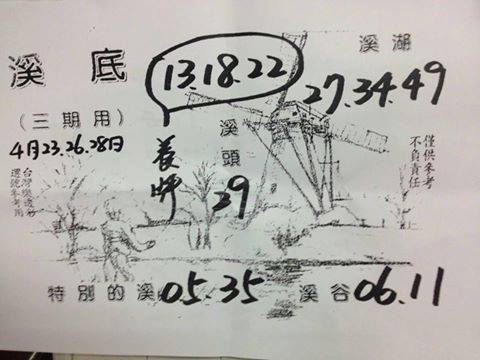 溪底
(三期用)
4月23.26.28日
台灣樂透彩
選號參考用
13.18.22
養
溪頭
29
溪湖
27.34.49
僅供參考
不負責任
特別的溪 05.35
溪谷 06.11